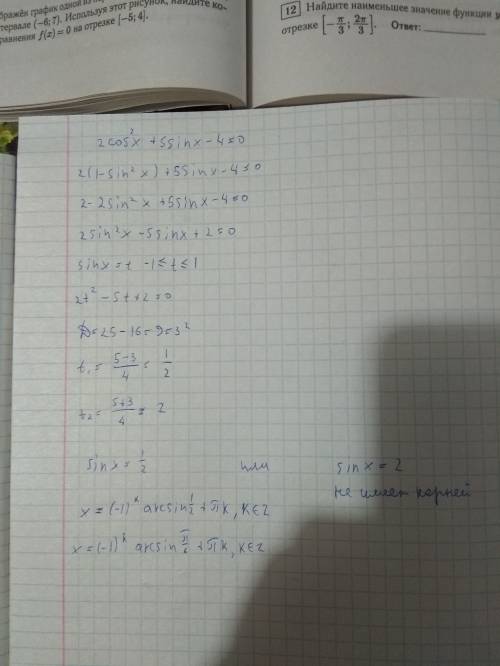 ображён график одной из пер
тервале (−6; 7). Используя этот рисунок, найдите ко-
равнения f(x) = 0 на отрезке [−5; 4].
12 Найдите наименьшее значение функции
отрезке [−π/3; 2π/3]. Ответ:
2cos²x + 5sinx − 4 = 0
2(1 − sin²x) + 5sinx − 4 = 0
2 − 2sin²x + 5sinx − 4 = 0
2sin²x − 5sinx + 2 = 0
sinx = t −1 ≤ t ≤ 1
2t² − 5t + 2 = 0
D = 25 − 16 = 9 = 3²
t₁ = (5−3)/4 = 1/2
t₂ = (5+3)/4 = 2
sinx = 1/2 или sinx = 2
не имеет корней
x = (−1)ᵏ arcsin 1/2 + πk, k∈z
x = (−1)ᵏ arcsin π/6 + πk, k∈z